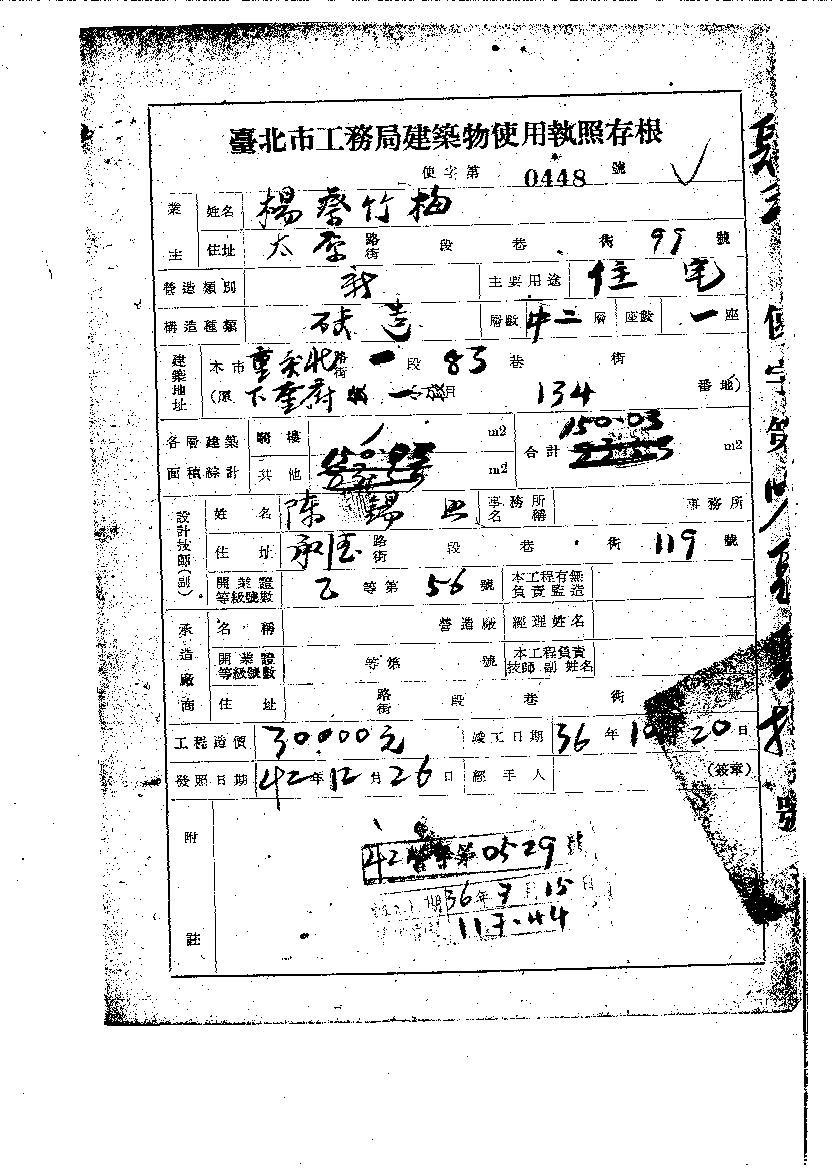 臺北市工務局建築物使用執照存根
使字第 0448 號
業主 姓名 楊蔡竹梅
住址 太原 路街 段 巷 街 99 號
營造類別 新 主要用途 住宅
構造種類 磚造 層數 二層 座數 一座
建築地址 本市 重慶北路街 一段 83 巷 街
(原 下奎府 134 番地)
各層建築面積綜計 騎樓 m2 合計 150.03 m2
其他 m2
設計技師(副) 姓名 陳錫 事務所名稱 事務所
住址 承德 路街 段 巷 街 119 號
開業證等級號數 乙 等第 56 號 本工程有無負責監造
承造廠商 名稱 營造廠 經理姓名
開業證等級號數 等第 號 本工程負責技師副姓名
住址 路街 段 巷 街 號
工程造價 30000元 竣工日期 36年10 20日
發照日期 42年12月26日 經手人 (簽章)
附註
42 第0529號
期 36年 月15日
使字第
號